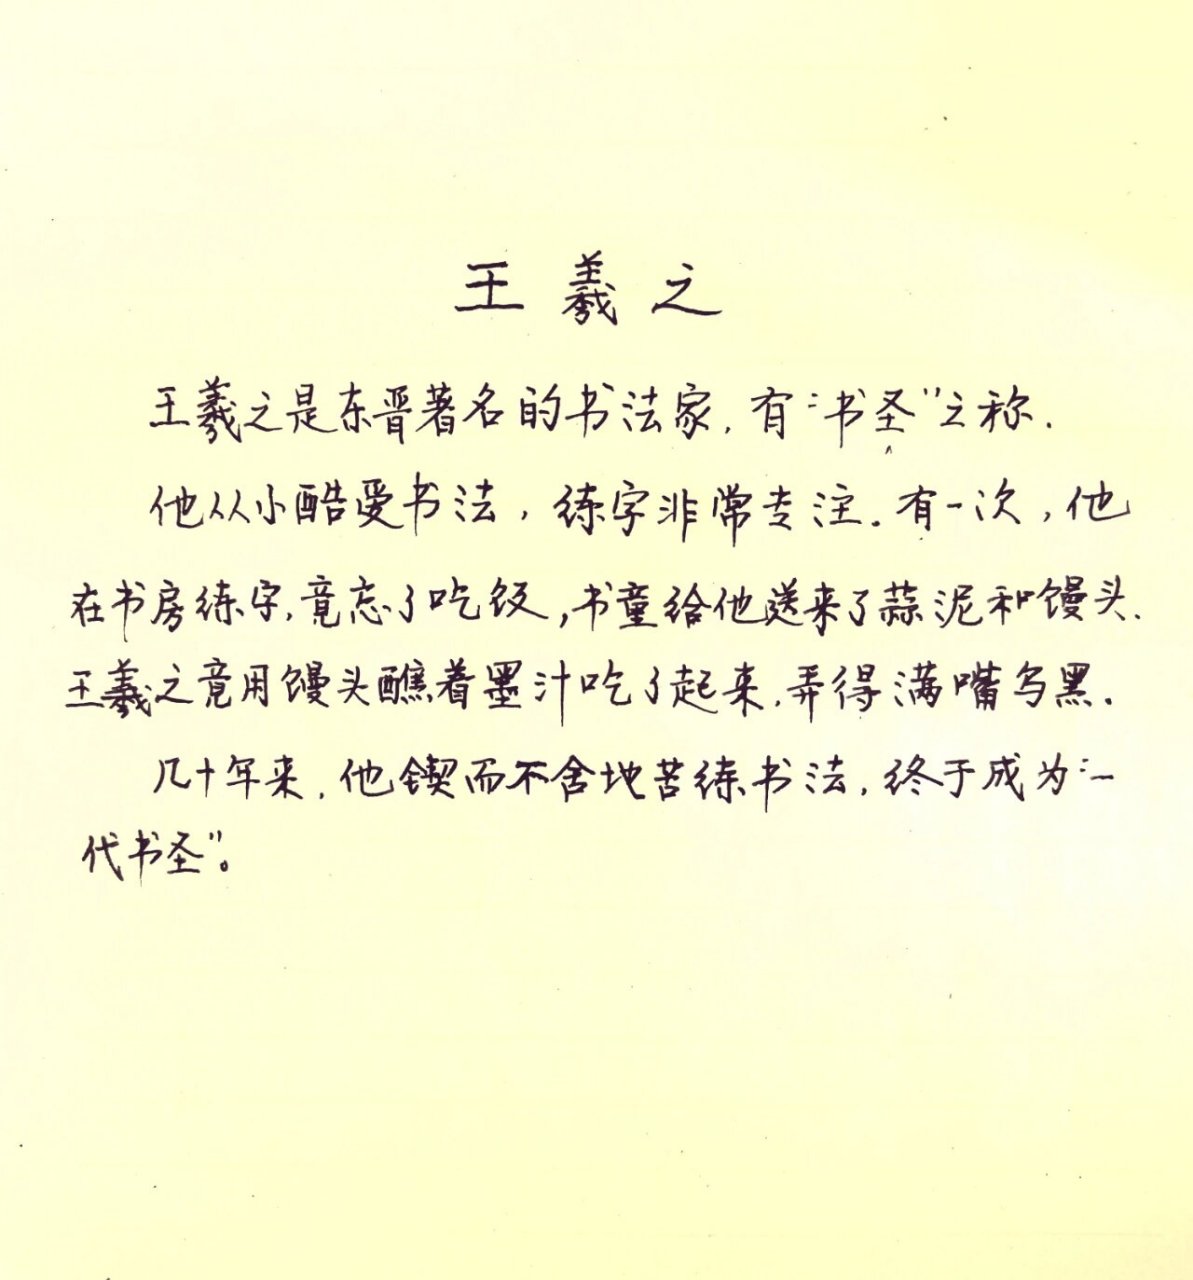 王羲之
王羲之是东晋著名的书法家,有“书圣”之称.
他从小酷爱书法,练字非常专注.有一次,他
在书房练字,竟忘了吃饭,书童给他送来了蒜泥和馒头.
王羲之竟用馒头醮着墨汁吃了起来,弄得满嘴乌黑.
几十年来,他锲而不舍地苦练书法,终于成为“一
代书圣”。